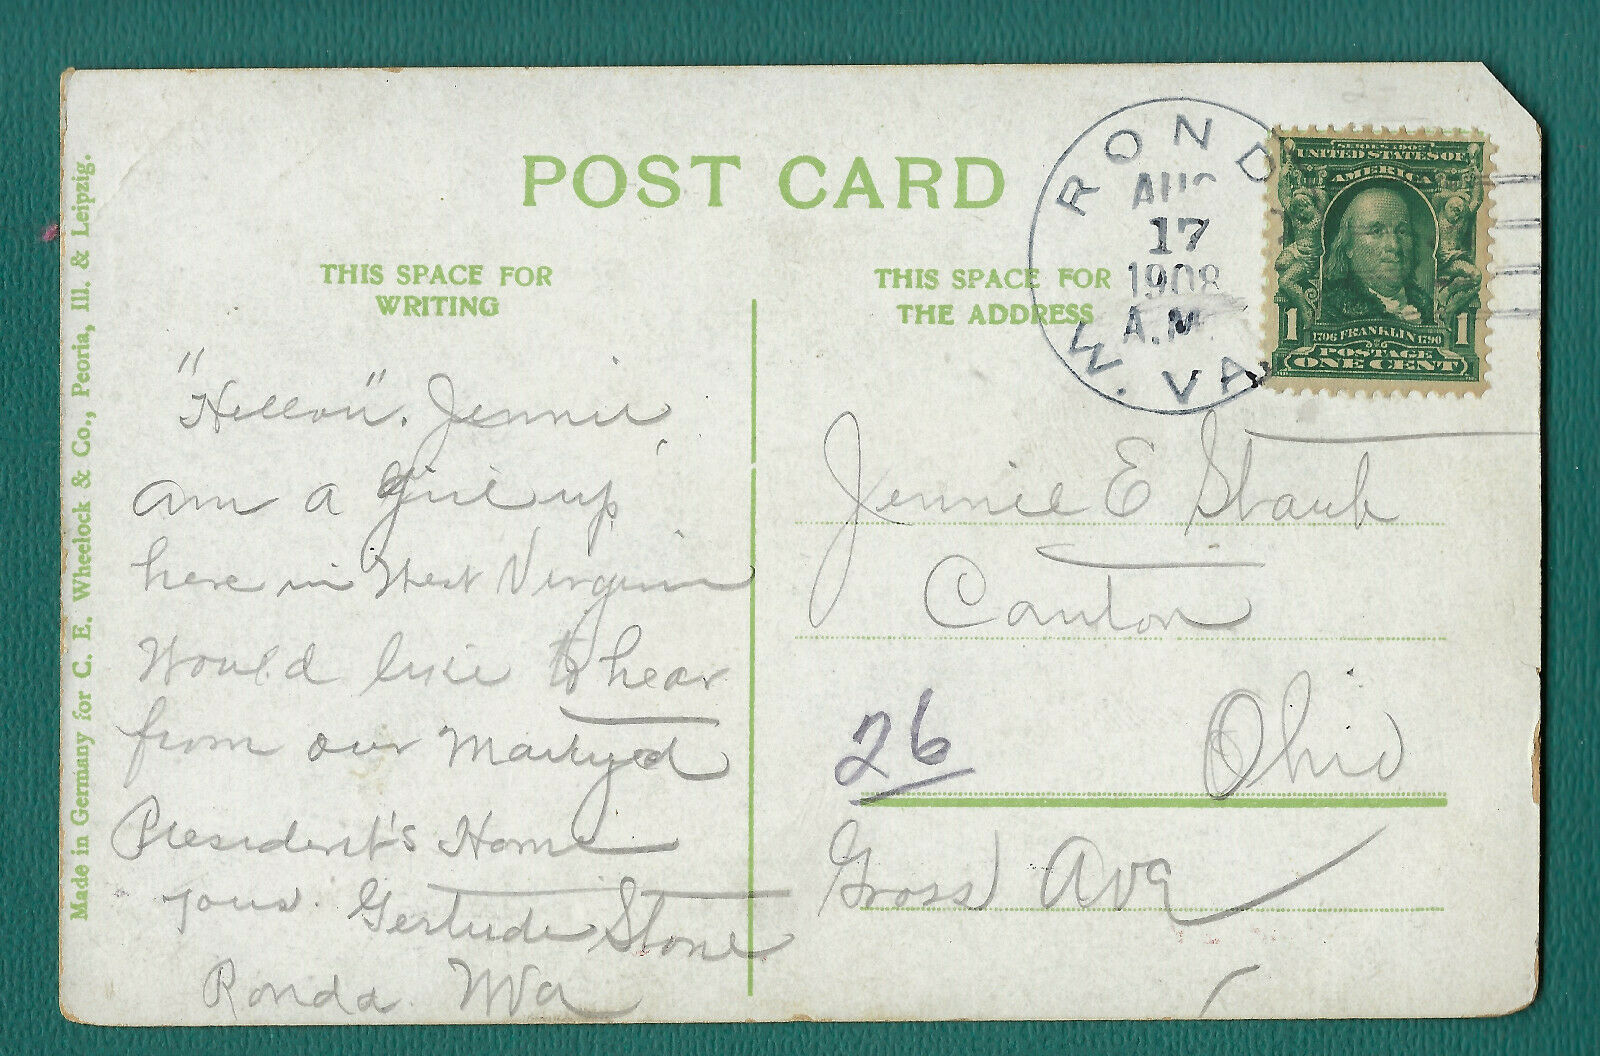 POST CARD
THIS SPACE FOR
WRITING
THIS SPACE FOR
THE ADDRESS
Made in Germany for C. E. Wheelock & Co., Peoria, Ill. & Leipzig.
ROND
AUG
17
1908
A.M.
W. VA
SERIES 1902
UNITED STATES OF
AMERICA
1 1706 FRANKLIN 1790 1
POSTAGE
ONE CENT
"Hellow". Jennie
am a Girl up
here in West Virginia
Would like to hear
from our Martyd
President's Home
yours. Gertrude Stone
Ronda. WVa
Jennie E Staub
Canton
Ohio
26
Gross Ave